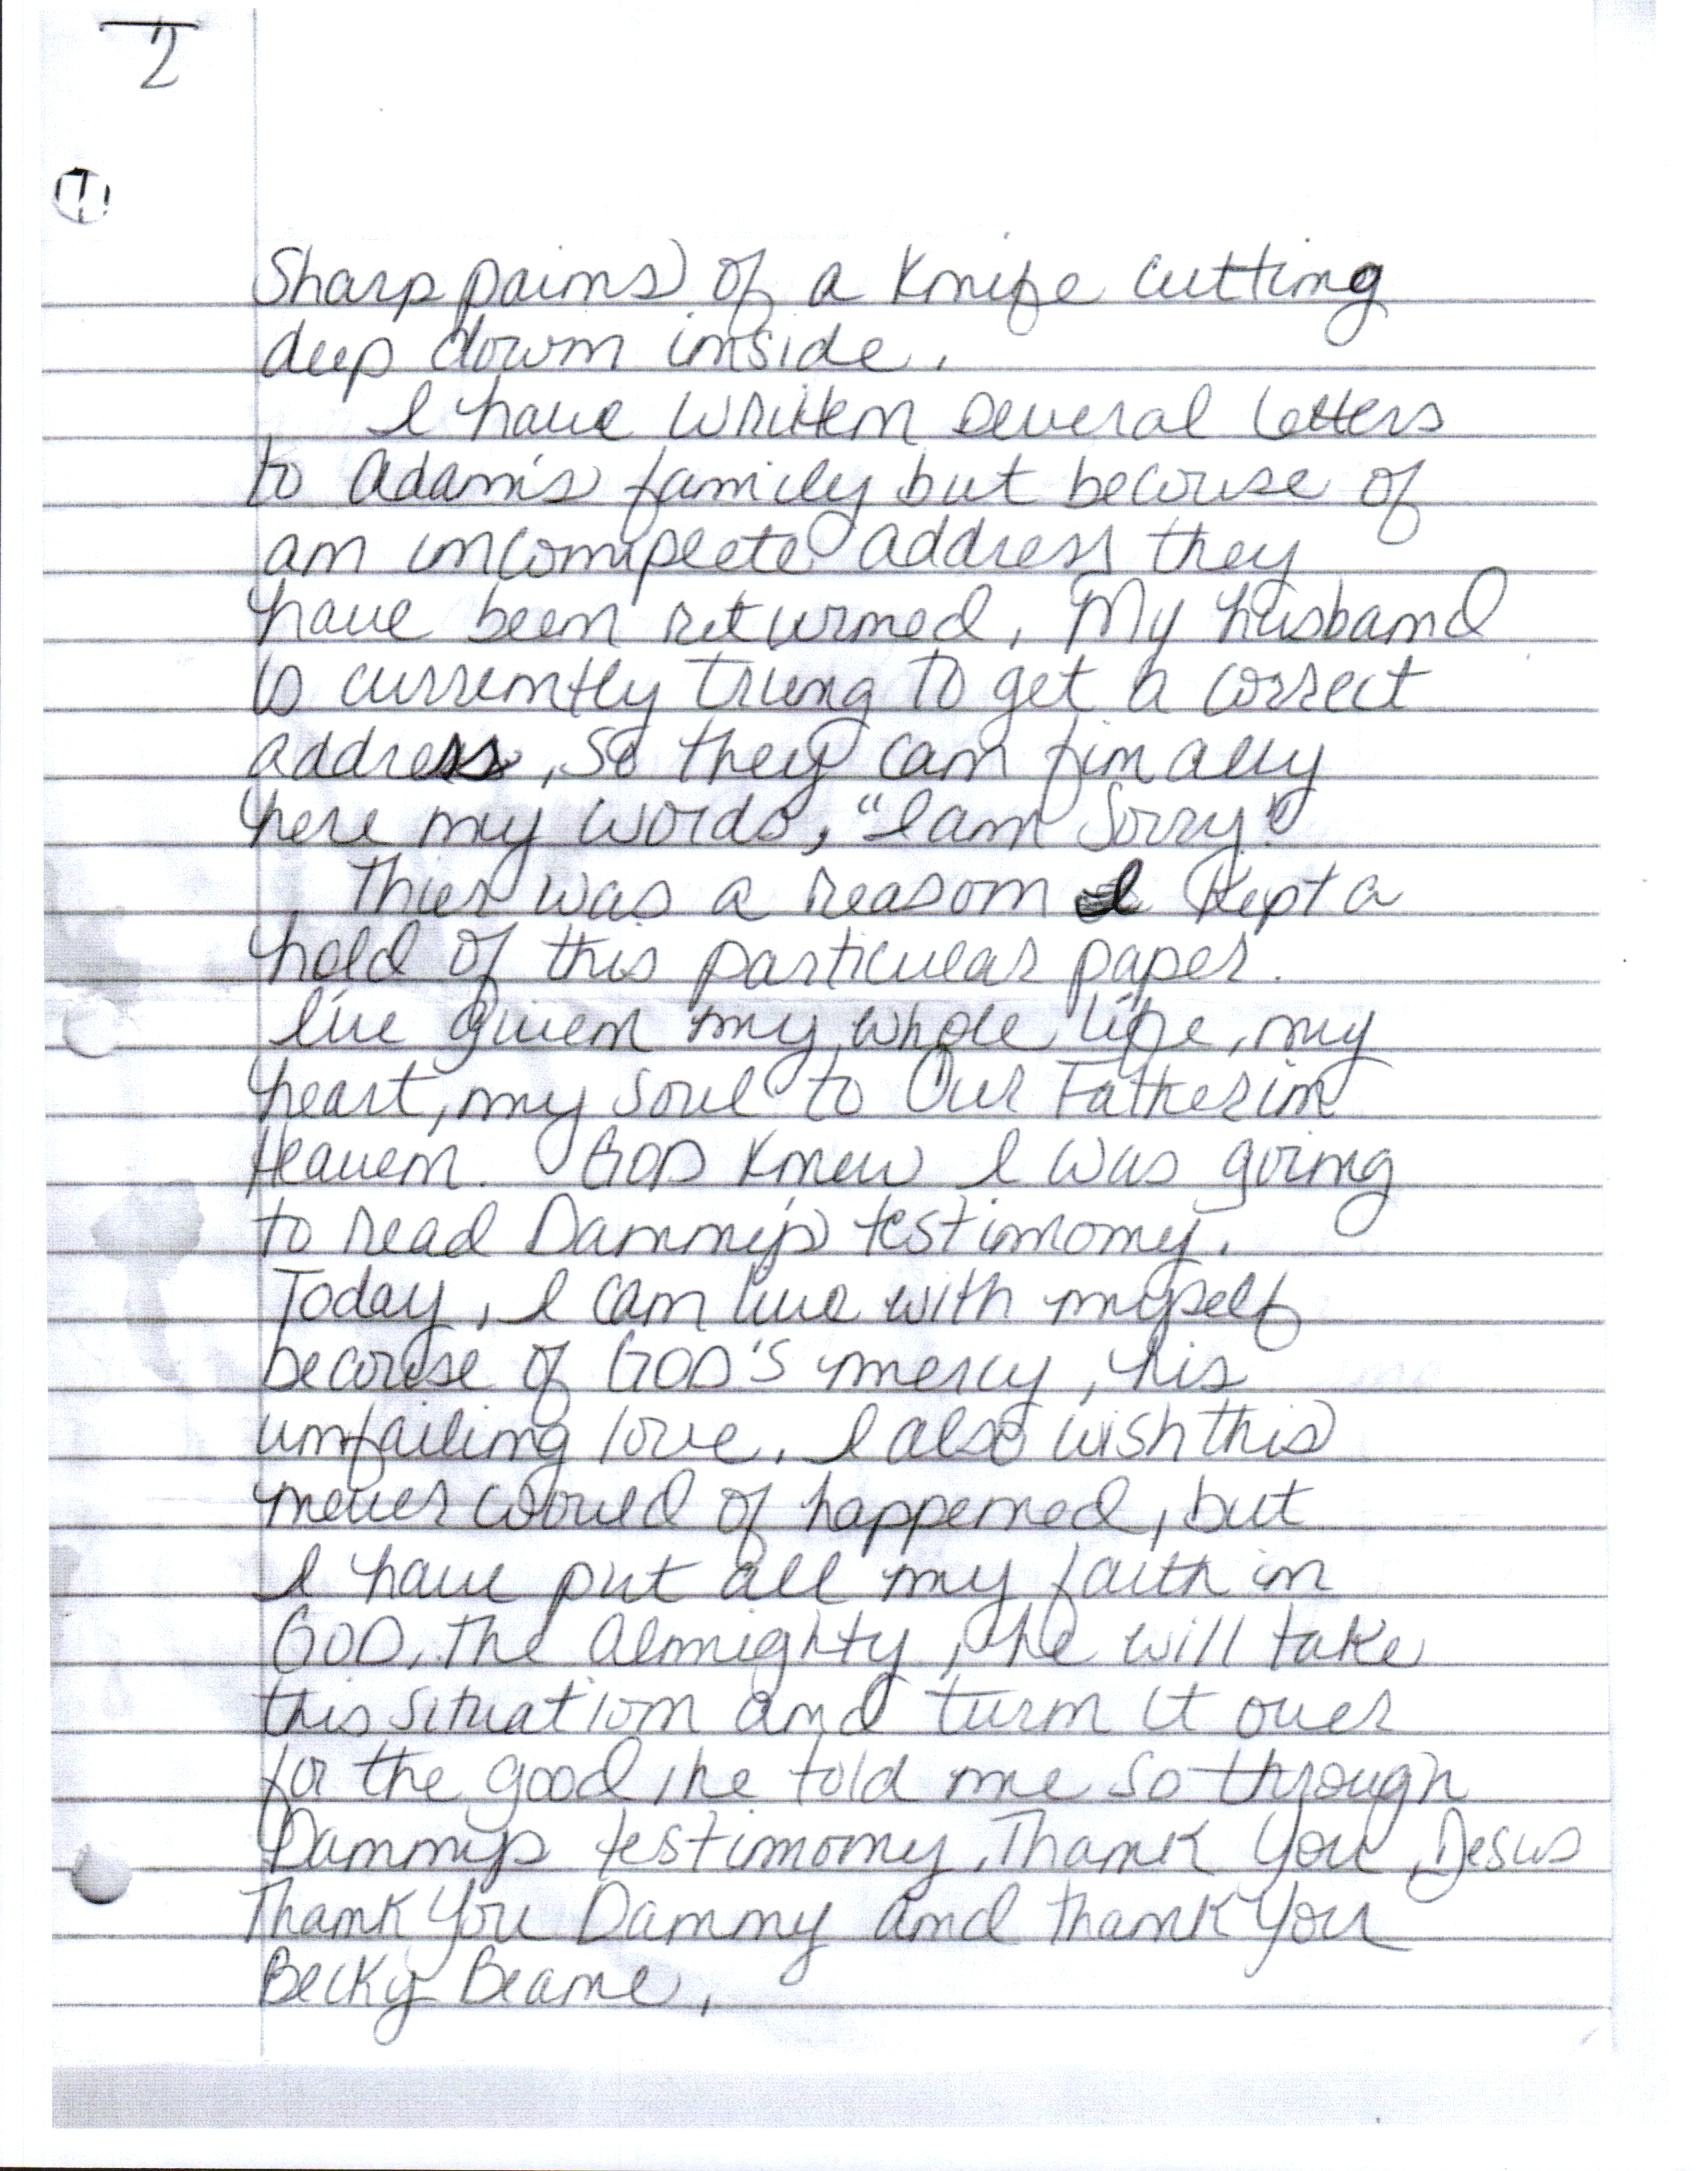 2
Sharp pains of a knife cutting
deep down inside.
I have written several letters
to Adam's family but because of
an incomplete address they
have been returned. My husband
is currently trying to get a correct
address, so they can finally
here my words, "I am Sorry."
Thier was a reason I Kept a
hold of this particular paper.
I've given my whole life, my
heart, my soul to Our Father in
Heaven. GOD knew I was going
to read Danny's testimony.
Today, I can live with myself
because of GOD'S mercy, his
unfailing love. I also wish this
never would of happened, but
I have put all my faith in
GOD, The Almighty, he will take
this situation and turn it over
for the good, he told me so through
Danny's testimony. Thank You Jesus
Thank You Danny and thank You
Becky Beane.